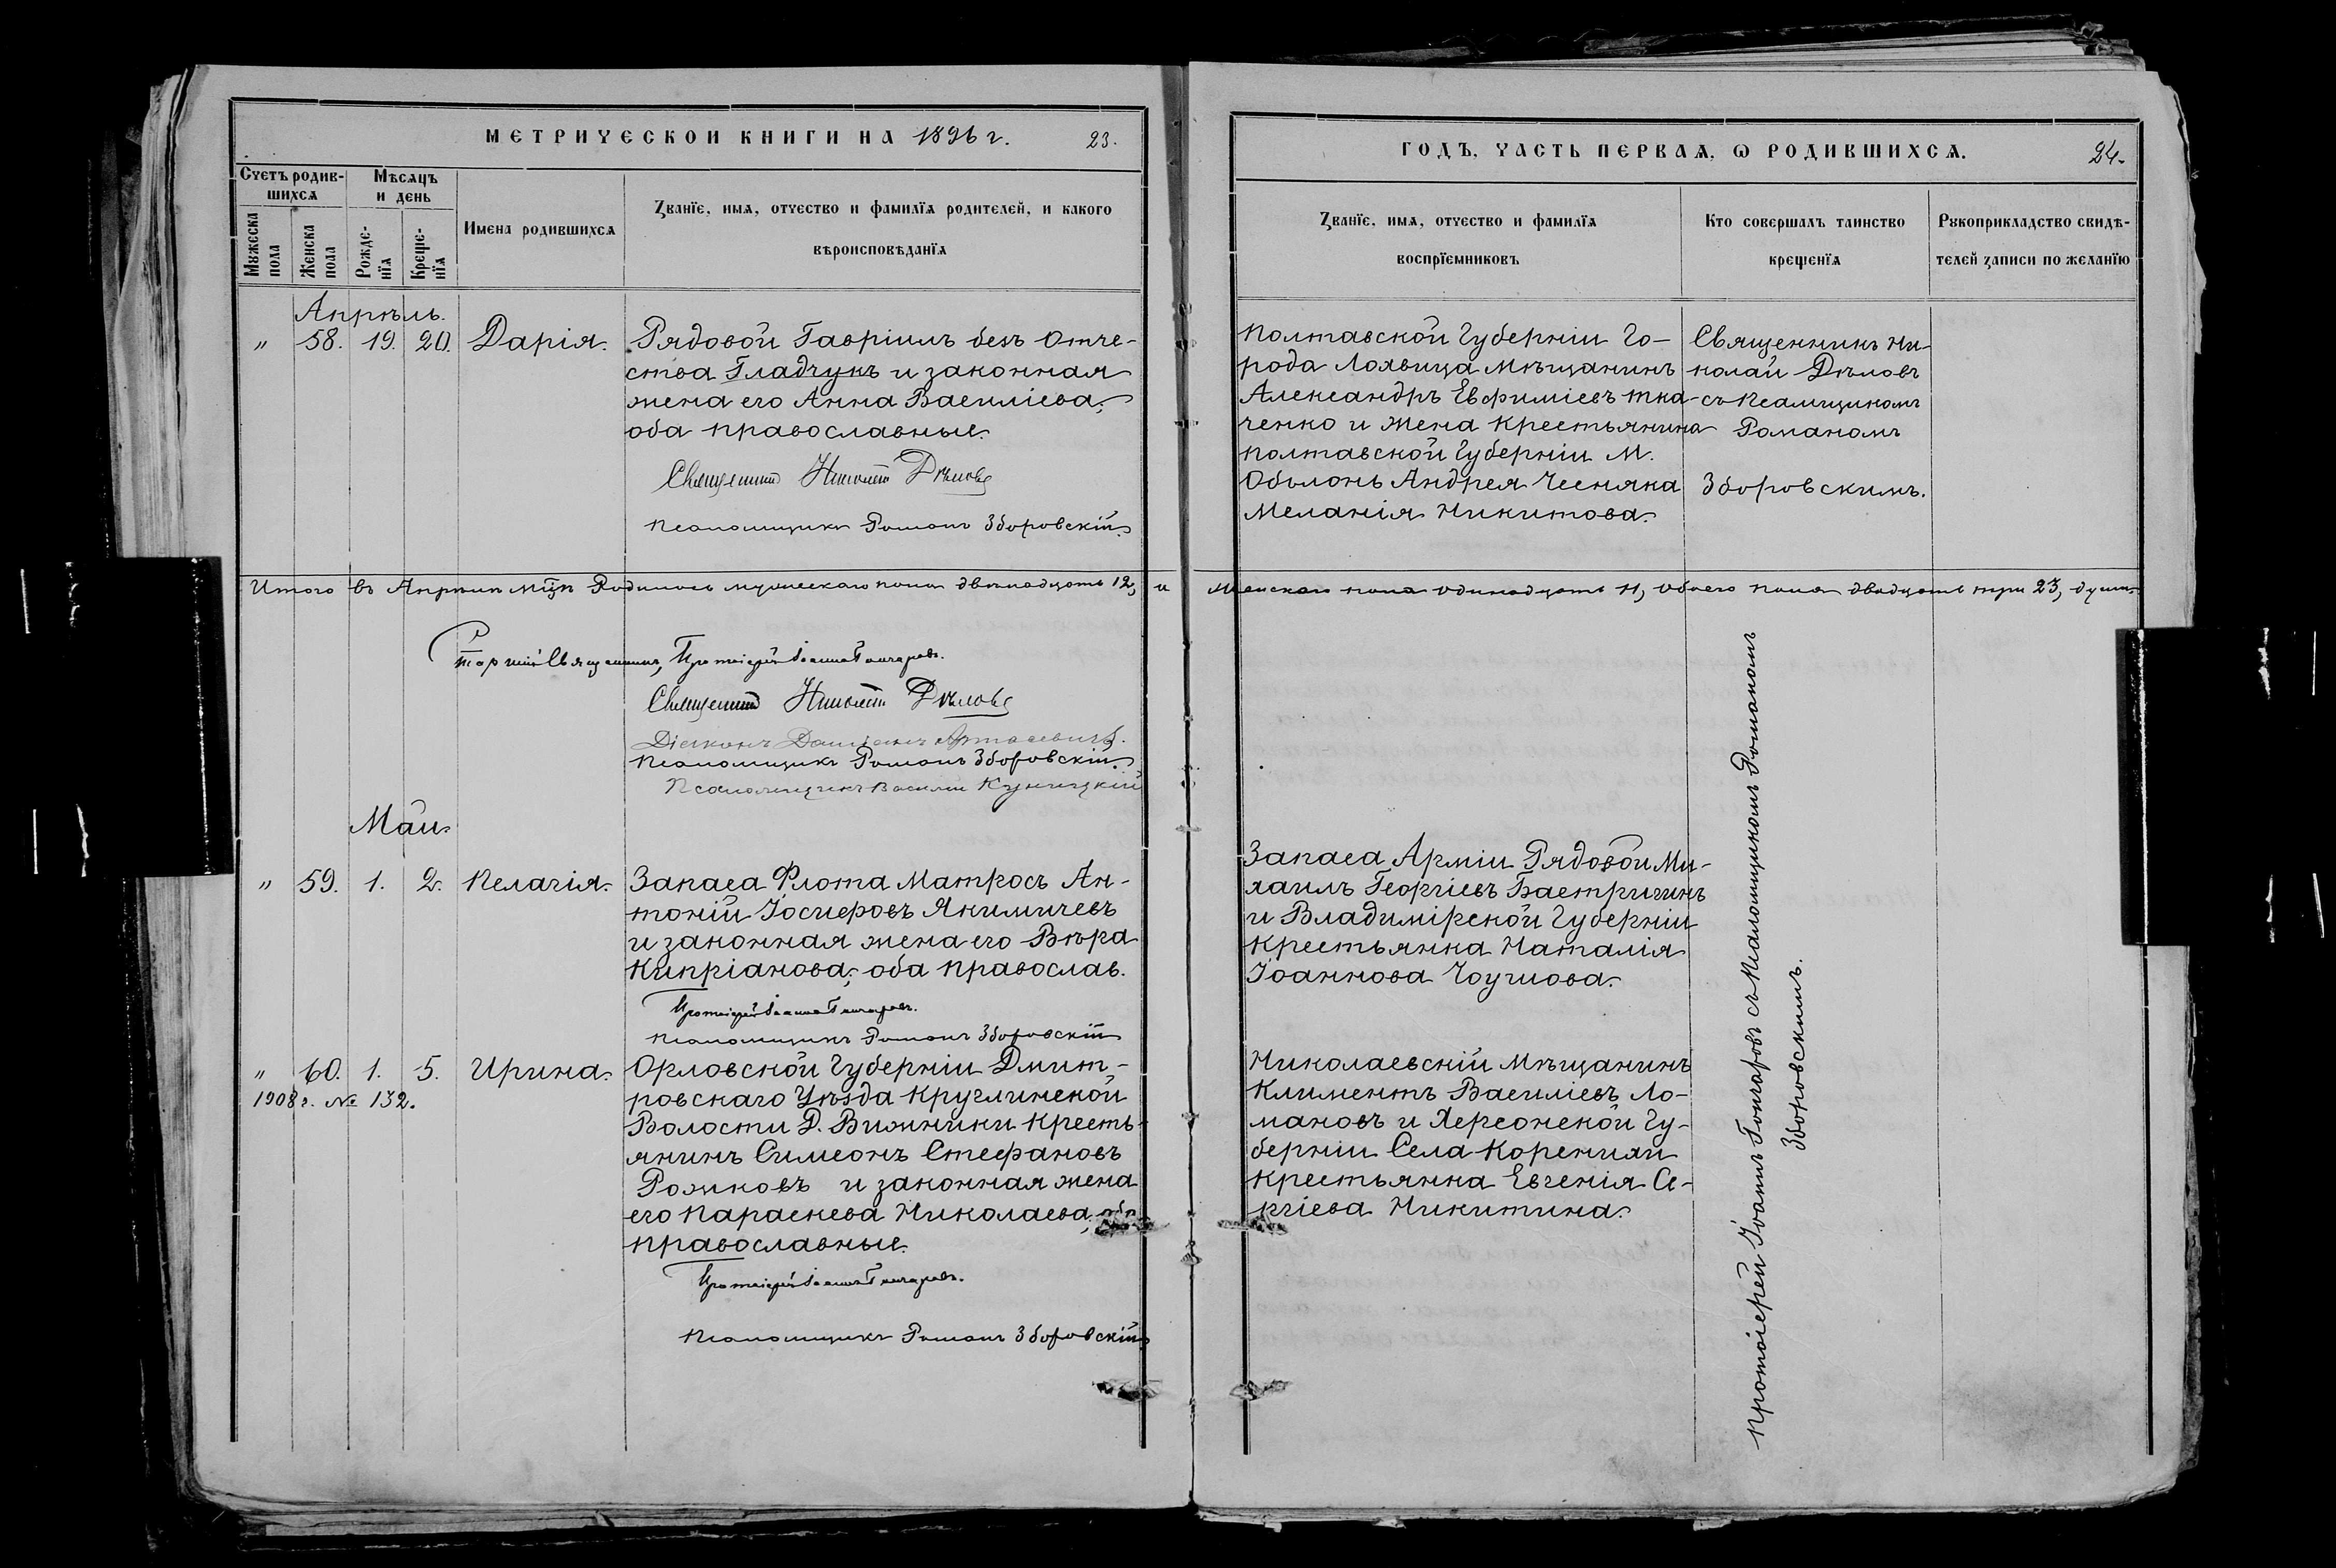 МЕТРИЧЕСКОИ КНИГИ НА 1896 г. 23.
Счетъ родив-
шихся
Мѣсяцъ
и день
Мужеска
пола
Женска
пола
Рожде-
нїя
Креще-
нїя
Имена родившихся
Званїе, имя, отчество и фамилїя родителей, и какого
вѣроисповѣданїя
Апрѣль.
" 58. 19. 20. Дарія. Рядовой Гавріилъ безъ отче-
ства Гладчукъ и законная
жена его Анна Василіева,
оба православные.
Священникъ Николай Дѣловъ
Псаломщикъ Романъ Зборовскій
Итого въ Апрѣлѣ мцѣ Родилось мужескаго пола двѣнадцать 12, и
Старшій Священникъ, Протоіерей Іоаннъ Гончаровъ.
Священникъ Николай Дѣловъ
Діаконъ
Псаломщикъ Романъ Зборовскій
Псаломщикъ Василій Куницкій
Май.
" 59. 1. 2. Пелагія. Запаса Флота Матросъ Ан-
тоній Іосифовъ Якимичевъ
и законная жена его Вѣра
Кипріанова, оба православ.
Протоіерей Іоаннъ Гончаровъ.
Псаломщикъ Романъ Зборовскій
" 60. 1. 5. Ирина. Орловской Губерніи Дмит-
1908 г. № 132.
ровскаго Уѣзда Круглинской
Волости Д. Вижники кресть-
янинъ Симеонъ Стефановъ
Рожковъ и законная жена
его Параскева Николаева, оба
православные.
Протоіерей Іоаннъ Гончаровъ.
Псаломщикъ Романъ Зборовскій
ГОДЪ, ЧАСТЬ ПЕРВАЯ, Ѡ РОДИВШИХСЯ. 24.
Званїе, имя, отчество и фамилїя
воспрїемниковъ
Кто совершалъ таинство
крещенїя
Рукоприкладство свидѣ-
телей записи по желанїю
Полтавской Губерніи Го-
рода Лохвица Мѣщанинъ
Александръ Евфиміевъ Тка-
ченко и жена крестьянина
Полтавской Губерніи М.
Оболонь Андрея Чесняка
Меланія Никитова.
Священникъ Ни-
колай Дѣловъ
съ Псаломщикомъ
Романомъ
Зборовскимъ.
Женскаго пола одинадцать 11, обоего пола двадцать три 23, души.
Запаса Арміи Рядовой Ми-
хаилъ Георгіевъ Бастригинъ
и Владимірской Губерніи
крестьянка Наталія
Іоаннова
Николаевскій Мѣщанинъ
Климентъ Василіевъ Ло-
мановъ и Херсонской Гу-
берніи Села Корениxи
крестьянка Евгенія Се-
ргіева Никитина.
Протоіерей Іоаннъ Гончаровъ съ Псаломщикомъ Романомъ
Зборовскимъ.